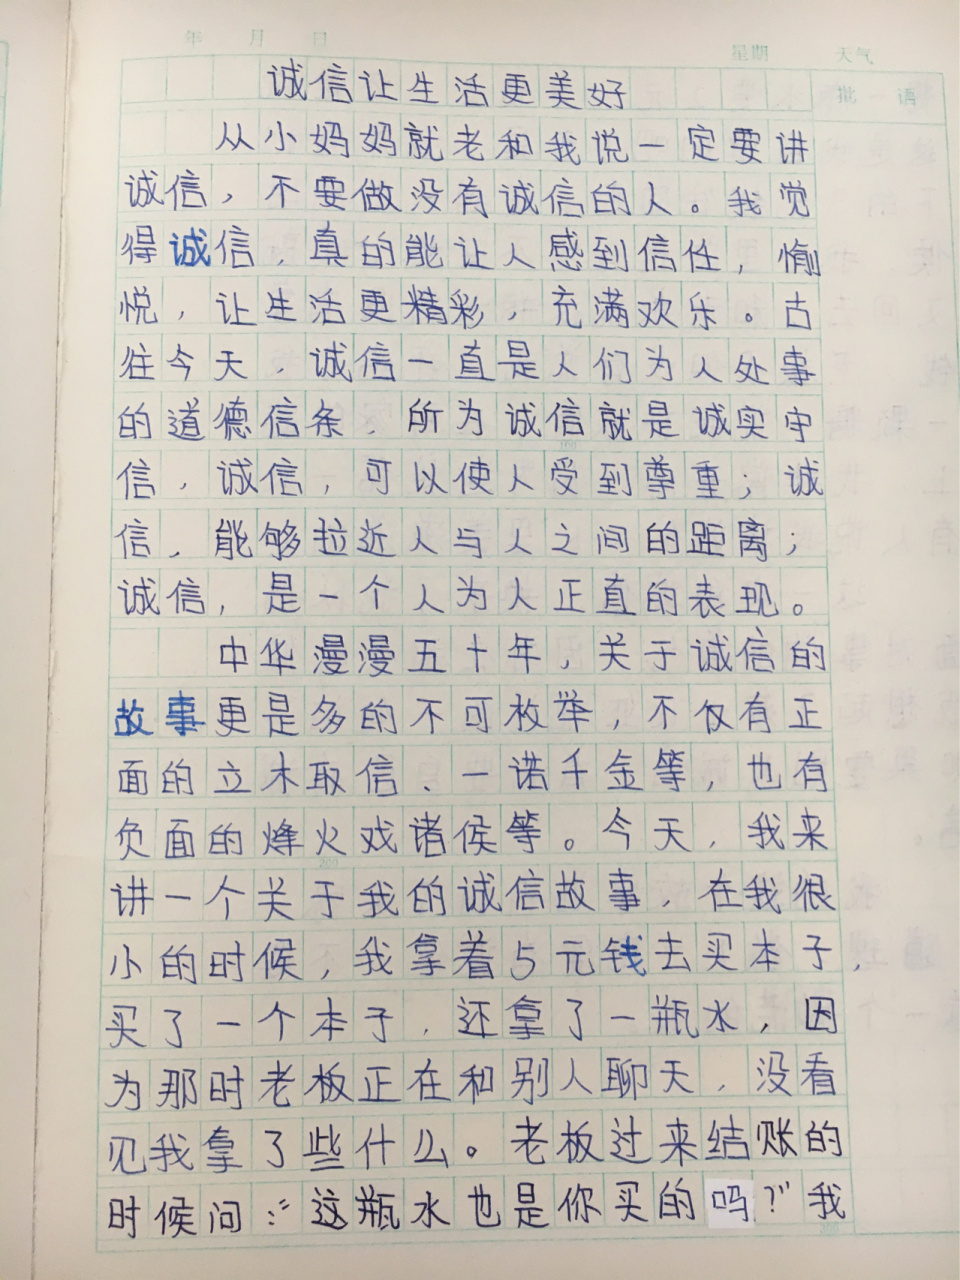 年 月 日 星期 天气
批 语
诚信让生活更美好
从小妈妈就老和我说一定要讲
诚信，不要做没有诚信的人。我觉
得诚信，真的能让人感到信任，愉
悦，让生活更精彩，充满欢乐。古
往今天，诚信一直是人们为人处事
的道德信条，所为诚信就是诚实守
信，诚信，可以使人受到尊重；诚
信，能够拉近人与人之间的距离；
诚信，是一个人为人正直的表现。
中华漫漫五十年，关于诚信的
故事更是多的不可枚举，不仅有正
面的立木取信、一诺千金等，也有
负面的烽火戏诸侯等。今天，我来
讲一个关于我的诚信故事，在我很
小的时候，我拿着5元钱去买本子，
买了一个本子，还拿了一瓶水，因
为那时老板正在和别人聊天，没看
见我拿了些什么。老板过来结账的
时候问："这瓶水也是你买的吗？"我